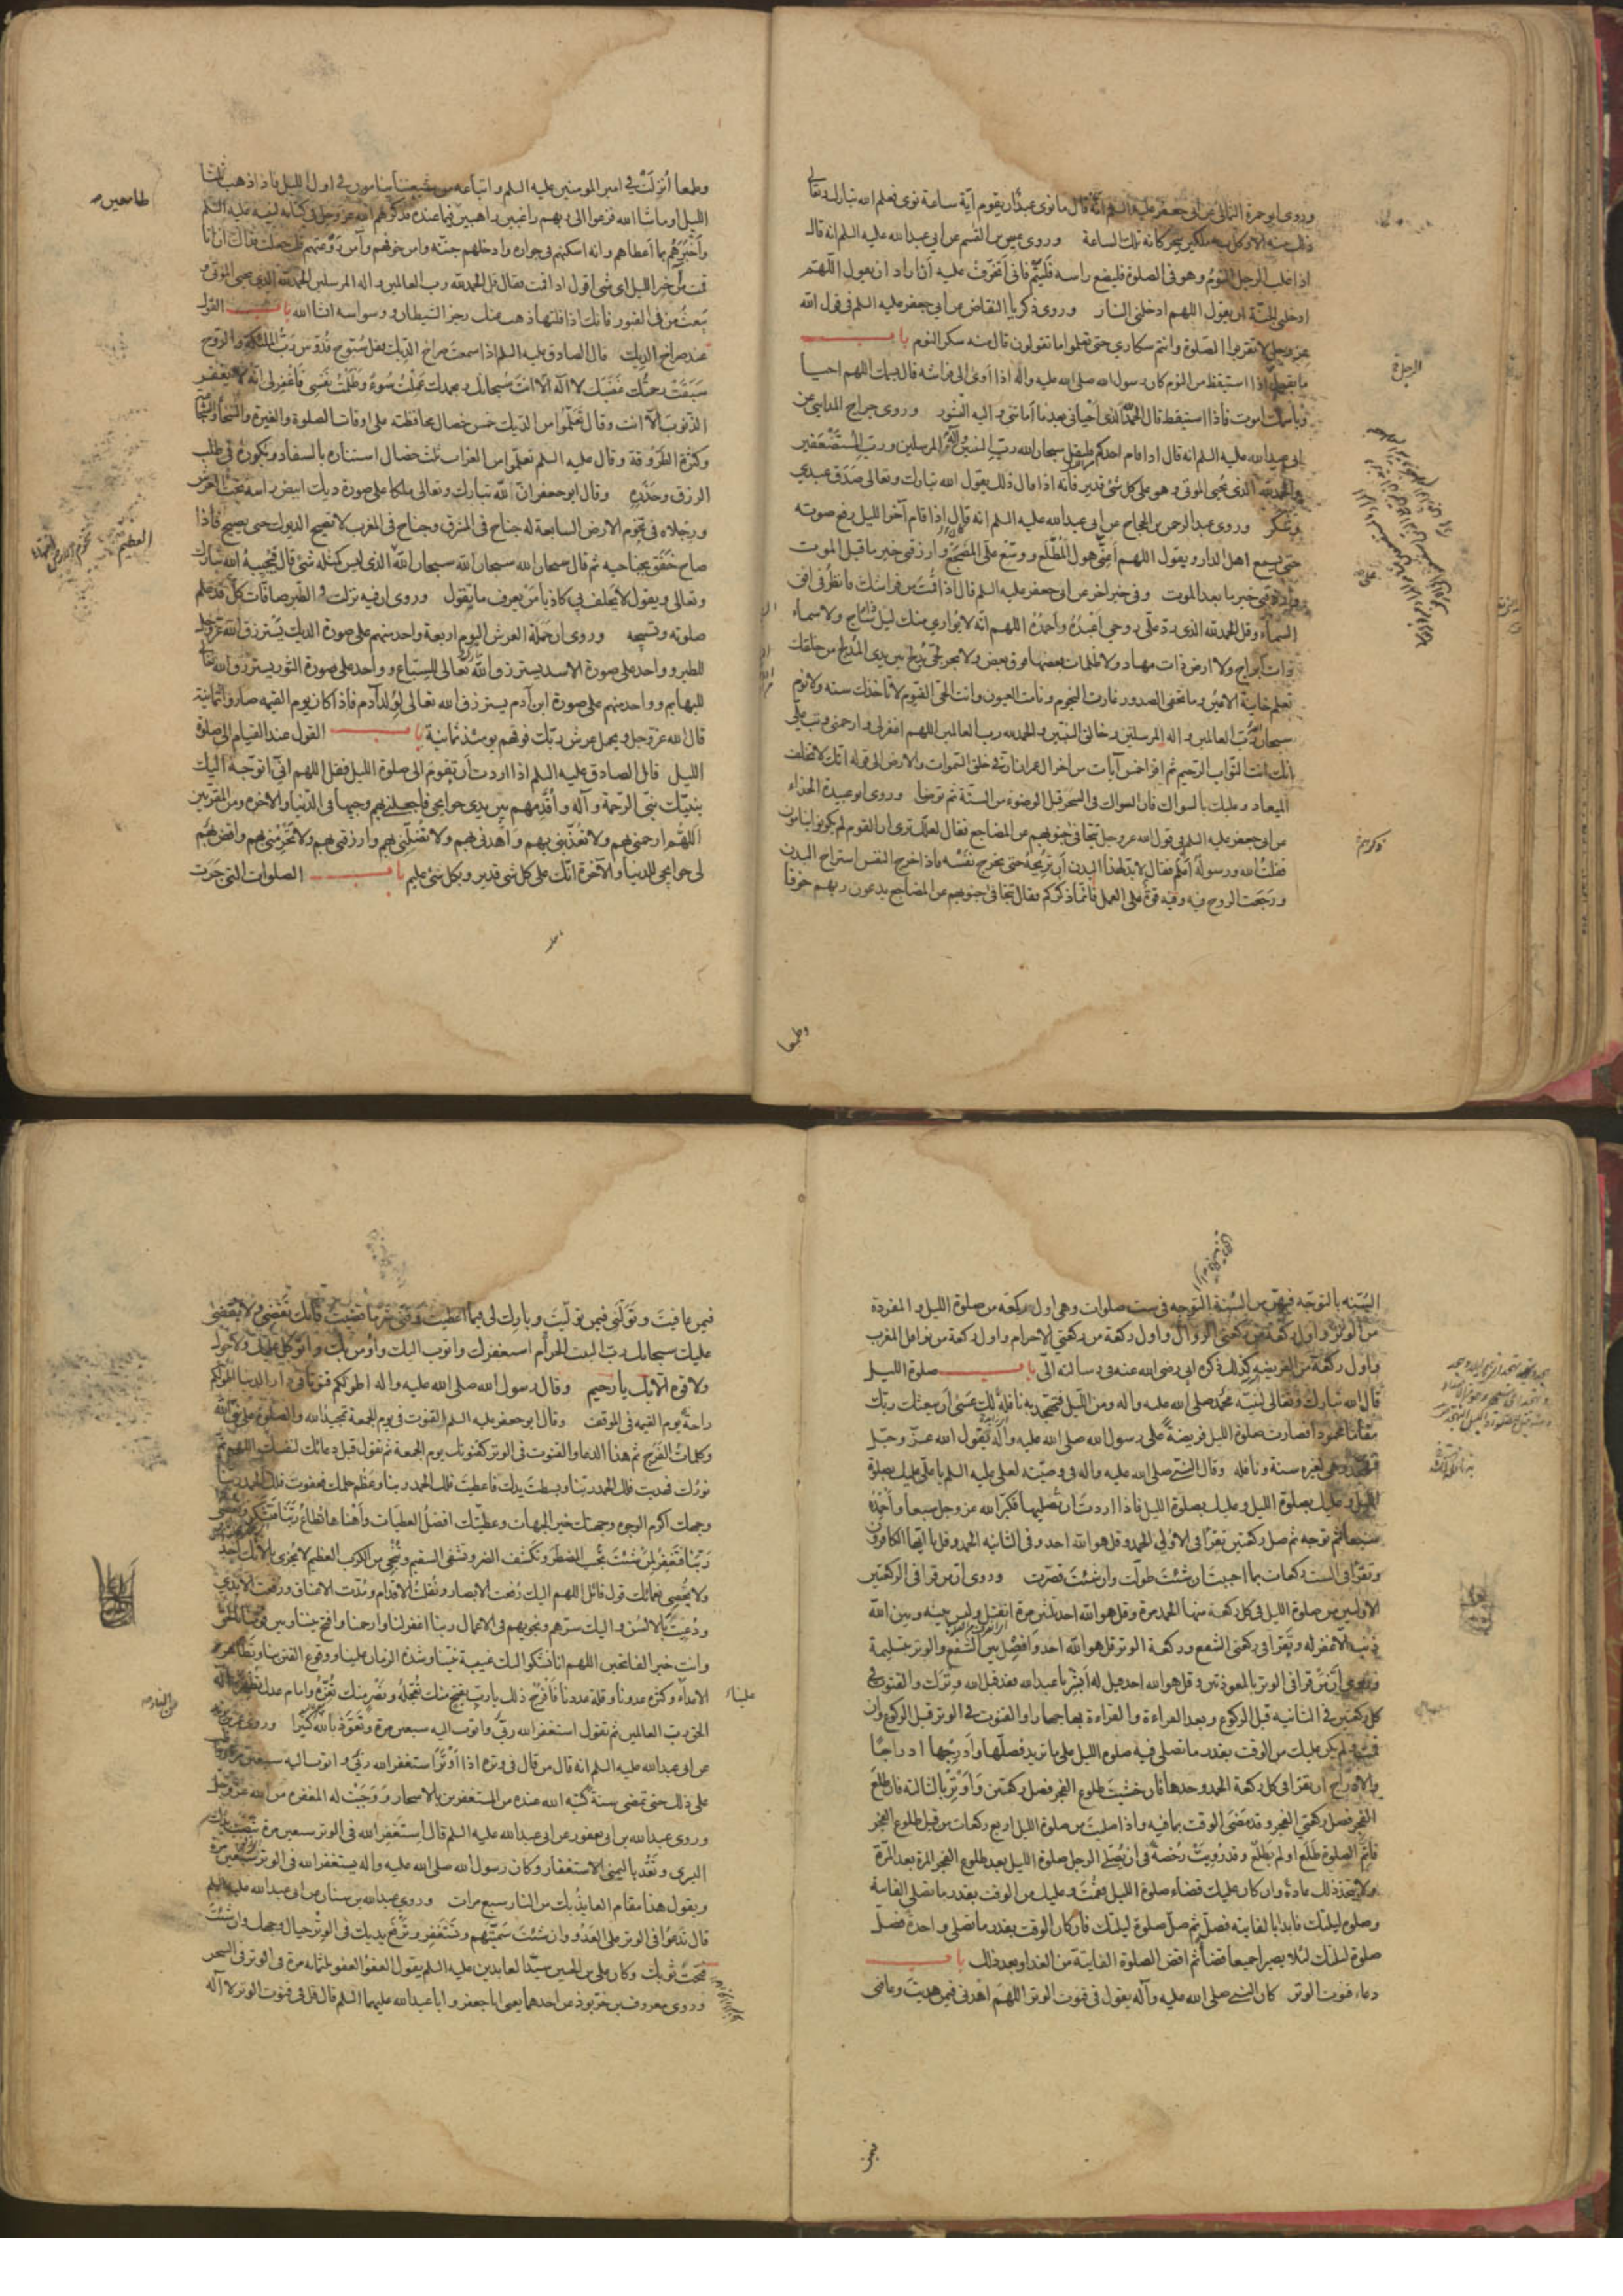 وروى ابو حمزة الثمالى عن ابى جعفر عليه السلم انه قال ما نوى عبد ان يقوم آية ساعة نوى فعلم الله تبارك وتعالى
ذلك منه الا وكل به ملكين يحركانه تلك الساعة وروى عيص بن القسم عن ابى عبد الله عليه السلم انه قال
اذا غلب الرجل النوم وهو فى الصلوة فليضع راسه فلينم فانى اتخوف عليه ان اراد ان يقول اللهم
ادخلنى الجنة ان يقول اللهم ادخلنى النار وروى زكريا النقاض عن ابى جعفر عليه السلم فى قول الله
عز وجل لا تقربوا الصلوة وانتم سكارى حتى تعلموا ما تقولون قال منه سكر النوم باب
ما يقول اذا استيقظ من النوم كان رسول الله صلى الله عليه واله اذا اوى الى فراشه قال باسمك اللهم احيا
وباسمك اموت فاذا استيقظ قال الحمد لله الذى احيانى بعد ما اماتنى واليه النشور وروى جراح المداينى عن
ابى عبد الله عليه السلم انه قال اذا قام احدكم فليقل سبحان الله رب النبيين واله المرسلين ورب المستضعفين
والحمد لله الذى يحيى الموتى وهو على كل شئ قدير فانه اذا قال ذلك يقول الله تبارك وتعالى صدق عبدى
وشكر وروى عبد الرحمن بن الحجاج عن ابى عبد الله عليه السلم انه كان اذا قام آخر الليل رفع صوته
حتى يسمع اهل الدار ويقول اللهم اعنى على هول المطلع ووسع على المضجع وارزقنى خير ما قبل الموت
وارزقنى خير ما بعد الموت وفى خبر اخر عن ابى جعفر عليه السلم قال اذا قمت من فراشك فانظر فى افق
السماء وقل الحمد لله الذى رد على روحى اعبده واحمده اللهم انه لا يوارى منك ليل داج ولا سماء
ذات ابراج ولا ارض ذات مهاد ولا ظلمات بعضها فوق بعض ولا بحر لجى يدلج بين يدى المدلج من خلقك
تعلم خاينة الاعين وما تخفى الصدور غارت النجوم ونامت العيون وانت الحى القيوم لا تاخذك سنة ولا نوم
سبحان الله رب العالمين واله المرسلين وخالق النبيين والحمد لله رب العالمين اللهم اغفر لى وارحمنى وتب على
انك انت التواب الرحيم ثم اقرا خمس آيات من اخر ال عمران ان فى خلق السموات والارض الى قوله انك لا تخلف
الميعاد وعليك بالسواك فان السواك فى السحر قبل الوضوء من السنة ثم توضا وروى ابو عبيدة الحذاء
عن ابى جعفر عليه السلم فى قول الله عز وجل تتجافى جنوبهم عن المضاجع فقال لعلك ترى ان القوم لم يكونوا ينامون
فقلت الله ورسوله اعلم فقال لا بد لهذا البدن ان تريحه حتى يخرج نفسه فاذا خرج النفس استراح البدن
ورجعت الروح فيه وفيه قوة على العمل فانما ذكركم فقال تتجافى جنوبهم عن المضاجع يدعون ربهم خوفا
وطمعا
وطمعا انزلت فى امير المومنين عليه السلم واتباعه من شيعتنا ينامون فى اول الليل فاذا ذهب ثلثا
الليل او ما شا الله فزعوا الى ربهم راغبين راهبين فيما عنده فذكرهم الله عز وجل فى كتابه لنبيه عليه السلم
واخبرهم بما اعطاهم وانه اسكنهم فى جواره وادخلهم جنته وامن خوفهم وآمن روعتهم قلت جعلت فداك ان انا
قمت من آخر الليل اى شئ اقول اذا قمت فقال قل الحمد لله رب العالمين واله المرسلين الحمد لله الذى يحيى الموتى و
يبعث من فى القبور فانك اذا قلتها ذهب عنك رجز الشيطان ووسواسه انشا الله باب القول
عند صراخ الديك قال الصادق عليه السلم اذا سمعت صراخ الديك فقل سبوح قدوس رب الملئكة والروح
سبقت رحمتك غضبك لا اله الا انت سبحانك وبحمدك عملت سوء وظلمت نفسى فاغفر لى انه لا يغفر
الذنوب الا انت وقال تعلموا من الديك خمس خصال محافظته على اوقات الصلوة والغيرة والسخا والشجاعة
وكثرة الطروقة وقال عليه السلم تعلموا من الغراب ثلث خصال استتاره بالسفاد وبكوره فى طلب
الرزق وحذره وقال ابو جعفر ان لله تبارك وتعالى ملكا على صورة ديك ابيض راسه تحت العرش
ورجلاه فى تخوم الارض السابعة له جناح فى المشرق وجناح فى المغرب لا تصيح الديوك حتى يصيح فاذا
صاح خفق بجناحيه ثم قال سبحان الله سبحان الله سبحان الله الذى ليس كمثله شئ قال فيجيبه الله تبارك
وتعالى ويقول لا يحلف بى كاذبا من يعرف ما يقول وروى ان فيه نزلت والطير صافات كل قد علم
صلوته وتسبيحه وروى ان حملة العرش اليوم اربعة واحد منهم على صورة الديك يسترزق الله عز وجل
للطير وواحد على صورة الاسد يسترزق الله تعالى للسباع وواحد على صورة الثور يسترزق الله تعالى
للبهايم وواحد منهم على صورة ابن آدم يسترزق الله تعالى لولد آدم فاذا كان يوم القيمه صاروا ثمانية
قال الله عز وجل ويحمل عرش ربك فوقهم يومئذ ثمانية باب القول عند القيام الى صلوة
الليل قال الصادق عليه السلم اذا اردت ان تقوم الى صلوة الليل فقل اللهم انى اتوجه اليك
بنبيك نبى الرحمة وآله واقدمهم بين يدى حوايجى فاجعلنى بهم وجيها فى الدنيا والاخرة ومن المقربين
اللهم ارحمنى بهم ولا تعذبنى بهم واهدنى بهم ولا تضلنى بهم وارزقنى بهم ولا تحرمنى بهم واقض بهم
لى حوايجى للدنيا والآخرة انك على كل شئ قدير وبكل شئ عليم باب الصلوات التى جرت
السنه بالتوجه فيهن من السنة التوجه فى ست صلوات وهى اول ركعة من صلوة الليل والمفردة
من الوتر واول ركعة من ركعتى الزوال واول ركعة من ركعتى الاحرام واول ركعة من نوافل المغرب
واول ركعة من الفريضه كذلك ذكره ابى رضى الله عنه فى رسالته الى باب صلوة الليل
قال الله تبارك وتعالى لنبيه محمد صلى الله عليه واله ومن الليل فتهجد به نافلة لك عسى ان يبعثك ربك
مقاما محمودا فصارت صلوة الليل فريضة على رسول الله صلى الله عليه وآله لقول الله عز وجل
فتهجد وهى لغيره سنة ونافلة وقال النبى صلى الله عليه واله فى وصيته لعلى عليه السلم يا على عليك بصلوة
الليل وعليك بصلوة الليل وعليك بصلوة الليل فاذا اردت ان تصليها فكبر الله عز وجل سبعا واحمده
سبعا ثم توجه ثم صل ركعتين تقرا فى الاولى الحمد وقل هو الله احد وفى الثانيه الحمد وقل يا ايها الكافرون
وتقرا فى الست ركعات بما احببت ان شئت طولت وان شئت قصرت وروى ان من قرا فى الركعتين
الاولتين من صلوة الليل فى كل ركعة منها الحمد مرة وقل هو الله احد ثلثين مرة انفتل وليس بينه وبين الله
ذنب الا غفر له وتقرا فى ركعتى الشفع وركعة الوتر قل هو الله احد وافصل بين الشفع والوتر بتسليمة
وروى ان من قرا فى الوتر بالمعوذتين وقل هو الله احد قيل له ابشر يا عبد الله فقد قبل الله وترك والقنوت فى
كل ركعتين فى الثانية قبل الركوع وبعد القراءة والقراءة بها جهارا والقنوت فى الوتر قبل الركوع وان
قمت ولم يكن عليك من الوقت بقدر ما تصلى فيه صلوه الليل على ما تريد فصلها وادرجها ادراجا
والادراج ان تقرا فى كل ركعة الحمد وحدها فان خشيت طلوع الفجر فصل ركعتين واوتر بالثالثه فان طلع
الفجر فصل ركعتى الفجر وقد مضى الوقت بما فيه واذا صليت من صلوة الليل اربع ركعات من قبل طلوع الفجر
فاتم الصلوة طلع او لم يطلع وقد رويت رخصة فى ان يصلى الرجل صلوة الليل بعد طلوع الفجر المرة بعد المرة
ولا يتخذ ذلك عادة وان كان عليك قضاء صلوة الليل فقمت وعليك من الوقت بقدر ما تصلى الفايتة
وصلوه ليلتك فابدا بالفايته فصل ثم صل صلوة ليلتك فان كان الوقت بقدر ما تصلى واحدة فصل
صلوة ليلتك لئلا يصير جميعا قضا ثم اقض الصلوة الفايتة من الغد او بعد ذلك باب
دعاء قنوت الوتر كان النبى صلى الله عليه وآله يقول فى قنوت الوتر اللهم اهدنى فيمن هديت وعافنى
فيمن
فيمن عافيت وتولنى فيمن توليت وبارك لى فيما اعطيت وقنى شر ما قضيت فانك تقضى ولا يقضى
عليك سبحانك رب البيت الحرام استغفرك واتوب اليك واومن بك واتوكل عليك ولا حول
ولا قوه الا بك يا رحيم وقال رسول الله صلى الله عليه واله اطولكم قنوتا فى دار الدنيا اطولكم
راحة يوم القيمه فى الموقف وقال ابو جعفر عليه السلم القنوت فى يوم الجمعة تمجيد الله والصلوة على نبى الله
وكلمات الفرج ثم هذا الدعا والقنوت فى الوتر كقنوتك يوم الجمعة ثم تقول قبل دعائك لنفسك اللهم تم
نورك فهديت فلك الحمد ربنا وبسطت يدك فاعطيت فلك الحمد ربنا وعظم حلمك فعفوت فلك الحمد ربنا
وجهك اكرم الوجوه وجهتك خير الجهات وعطيتك افضل العطيات واهناها تطاع ربنا فتشكر وتعصى
ربنا فتغفر لمن شئت تجيب المضطر وتكشف الضر وتشفى السقيم وتنجى من الكرب العظيم لا يجزى بالائك احد
ولا يحصى نعمائك قول قائل اللهم اليك رفعت الابصار ونقلت الاقدام ومدت الاعناق ورفعت الايدى
ودعيت بالالسن واليك سرهم ونجويهم فى الاعمال ربنا اغفر لنا وارحمنا وافتح بيننا وبين قومنا بالحق
وانت خير الفاتحين اللهم انا نشكو اليك غيبة نبينا وشدة الزمان علينا ووقوع الفتن بنا وتظاهر
الاعداء وكثرة عدونا وقلة عددنا فافرج ذلك يا رب بفتح منك تعجله ونصر منك تعزه وامام عدل تظهره اله
الحق رب العالمين ثم تقول استغفر الله ربى واتوب اليه سبعين مرة وتعوذ بالله من النار كثيرا وروى
عن ابى عبد الله عليه السلم انه قال من قال فى وتره اذا اوتر استغفر الله ربى واتوب اليه سبعين مرة
على ذلك حتى تمضى سنة كتبه الله عنده من المستغفرين بالاسحار ووجبت له المغفره من الله عز وجل
وروى عبد الله بن ابى يعفور عن ابى عبد الله عليه السلم قال استغفر الله فى الوتر سبعين مرة تنصب يدك
اليسرى وتعد باليمنى الاستغفار وكان رسول الله صلى الله عليه واله يستغفر الله فى الوتر سبعين مرة
ويقول هذا مقام العايذ بك من النار سبع مرات وروى عبد الله بن سنان عن ابى عبد الله عليه السلم
قال تدعوا فى الوتر على العدو وان شئت سميتهم وتستغفر وترفع يديك فى الوتر حيال وجهك وان شئت
فتحت ثوبك وكان على بن الحسين سيد العابدين عليه السلم يقول العفو العفو ثلثمائه مرة فى الوتر فى السحر
وروى معروف بن خربوذ عن احدهما يعنى ابا جعفر وابا عبد الله عليهما السلم قال قل فى قنوت الوتر لا اله